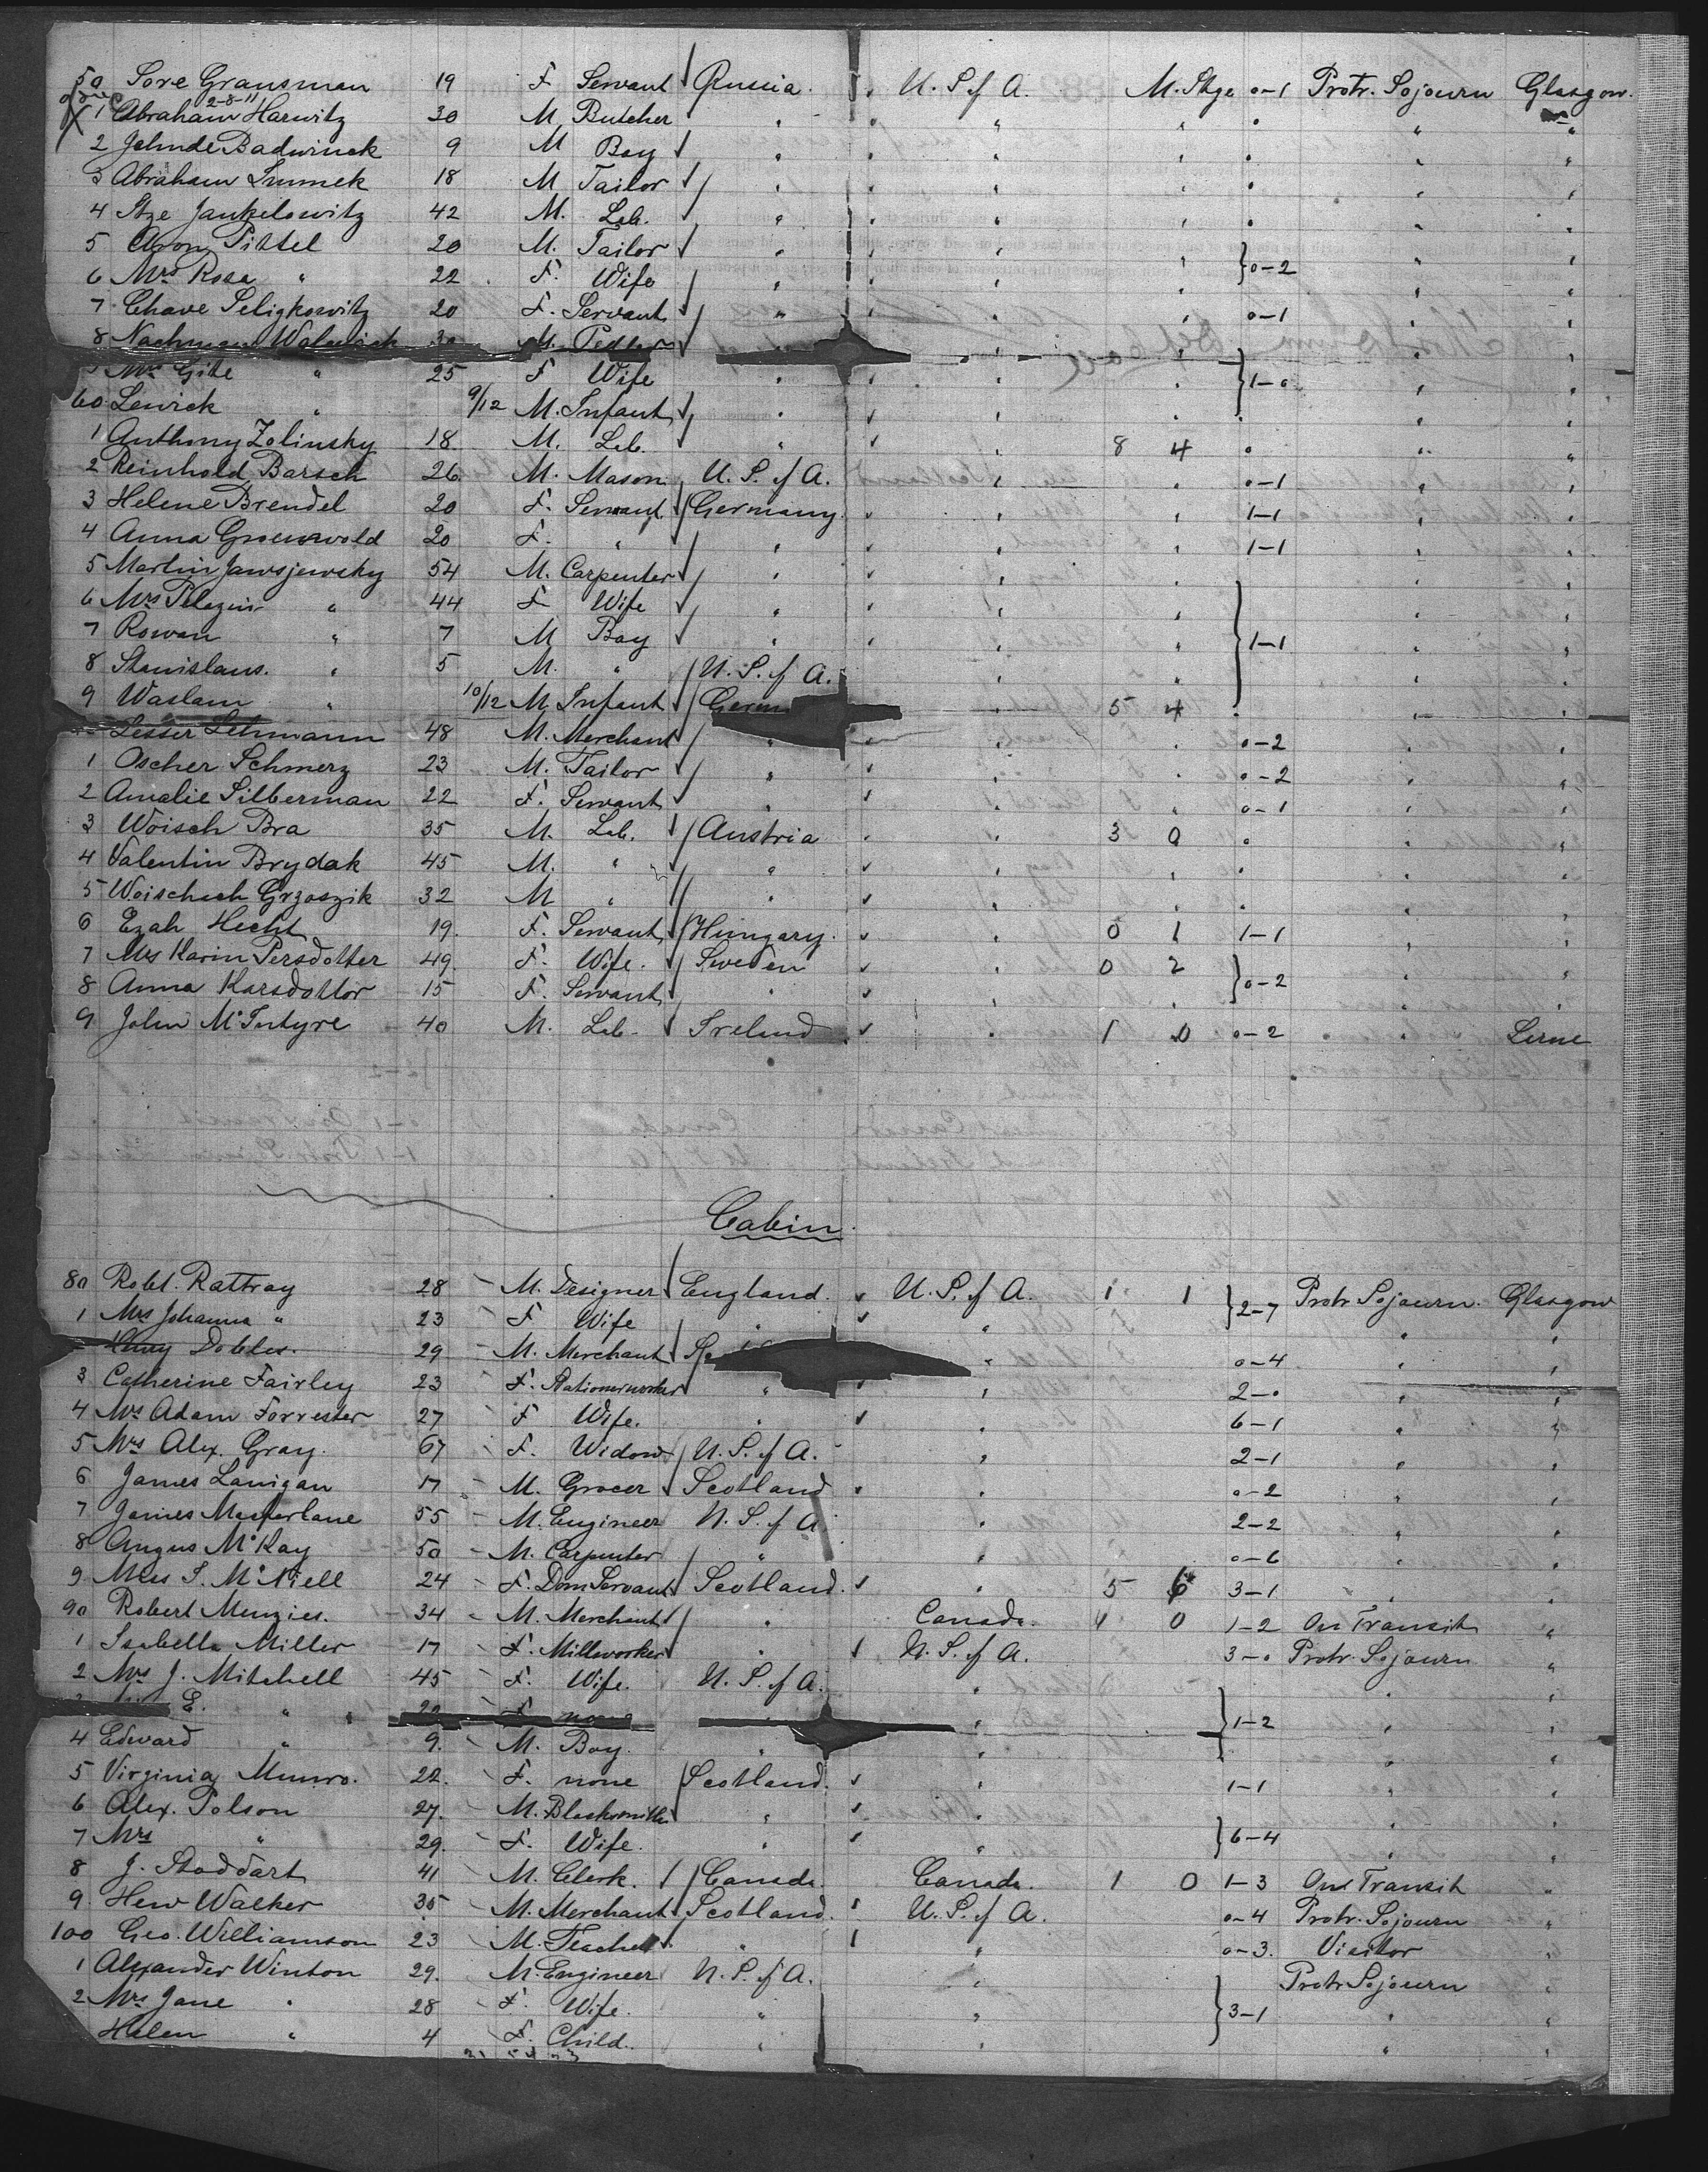 50 Sore Grausman 19 F Servant Russia. U. S. of A. M. Stge 0-1 Protr. Sojourn Glasgow.
2-8-11
1 Abraham Harwitz 30 M. Butcher " " " " " "
2 Badwinek 9 M Boy " " " " " "
3 Abraham 18 M Tailor " " " " " "
4 Itze Jankelowitz 42 M. Lab. " " " " " "
5 Aron Pittel 20 M. Tailor " " " } 0-2 " "
6 Mrs Rosa " 22 F. Wife " " " " "
7 Chave Seligkowitz 20 F. Servant " " " 0-1 " "
8 Nachman 30 M. Pedlar " " " "
Mrs Gite " 25 F Wife " " " } 1-0 " "
60 Lewick " 9/12 M. Infant " " " " "
1 Anthony Zolinsky 18 M. Lab. " " 8 4 " " "
2 Reinhold Barsch 26 M. Mason U. S. of A. " " 0-1 " "
3 Helene Brendel 20 F. Servant Germany. " " 1-1 " "
4 Anna 20 F. " " " " 1-1 " "
5 Martin Jawsjewsky 54 M. Carpenter " " " " "
6 Mrs " 44 F Wife " " " " "
7 Rowan " 7 M Boy " " " } 1-1 " "
8 Stanislaus. " 5 M. " U. S. of A. " " " "
9 Waslam " 10/12 M Infant Germ " 5 4 " " "
Lesser Lehmann 48 M. Merchant " " " 0-2 " "
1 Ascher Schmerz 23 M. Tailor " " " 0-2 " "
2 Amalie Silberman 22 F. Servant " " " 0-1 " "
3 Woisch Bra 35 M. Lab. Austria " 3 0 " " "
4 Valentin Brydak 45 M. " " " " " " "
5 Woischech Grzoszik 32 M " " " " " " "
6 Ezah Hecht 19. F. Servant Hungary. " 0 1 1-1 " "
7 Mrs Karin Persdotter 49. F. Wife. Sweden " 0 2 } 0-2 " "
8 Anna Karsdotter 15 F. Servant " " " " "
9 John McIntyre 40 M. Lab. Ireland " 1 0 0-2 " Larne
Cabin.
80 Robt. Rattray 28 M. Designer England. U. S. of A. 1 1 } 2-7 Protr Sojourn. Glasgow
1 Mrs Johanna " 23 F Wife " " " "
Dobles. 29 M. Merchant " 0-4 " "
3 Catherine Fairley 23 F. Stationerworker " " 2-0 " "
4 Mrs Adam Forrester 27 F Wife. " " 6-1 " "
5 Mrs Alex. Gray. 67 F. Widow U. S. of A. " 2-1 " "
6 James Lanigan 17 M. Grocer Scotland " 0-2 " "
7 James Macfarlane 55 M. Engineer U. S. of A " 2-2 " "
8 Angus McKay 50 M. Carpenter " " 0-6 " "
9 Miss S. McNiell 24 F. Dom Servant Scotland. " 5 6 3-1 " "
90 Robert Menzies. 34 M. Merchant " Canada. 4 0 1-2 On Transit "
1 Isabella Miller 17 F. Millworker " U. S. of A. 3-0 Protr. Sojourn "
2 Mrs J. Mitchell 45 F. Wife. U. S. of A. " " "
E. " " F none " } 1-2 " "
4 Edward " 9. M. Boy. " " " "
5 Virginia Munro. 22. F. none Scotland. " 1-1 " "
6 Alex. Polson 27. M. Blacksmith " " } 6-4 " "
7 Mrs " 29. F. Wife. " " " "
8 J. Stoddart 41 M. Clerk. Canada. Canada. 1 0 1-3 On Transit "
9. Hew Walker 35 M. Merchant Scotland. U. S. of A. 0-4 Protr. Sojourn "
100 Geo. Williamson 23 M. Teacher " " 0-3. Visitor "
1 Alexander Winton 29. M. Engineer U. S. of A. " Protr Sojourn "
2 Mrs Jane " 28 F. Wife. " " } 3-1 " "
Helen " 4 F. Child. " " "